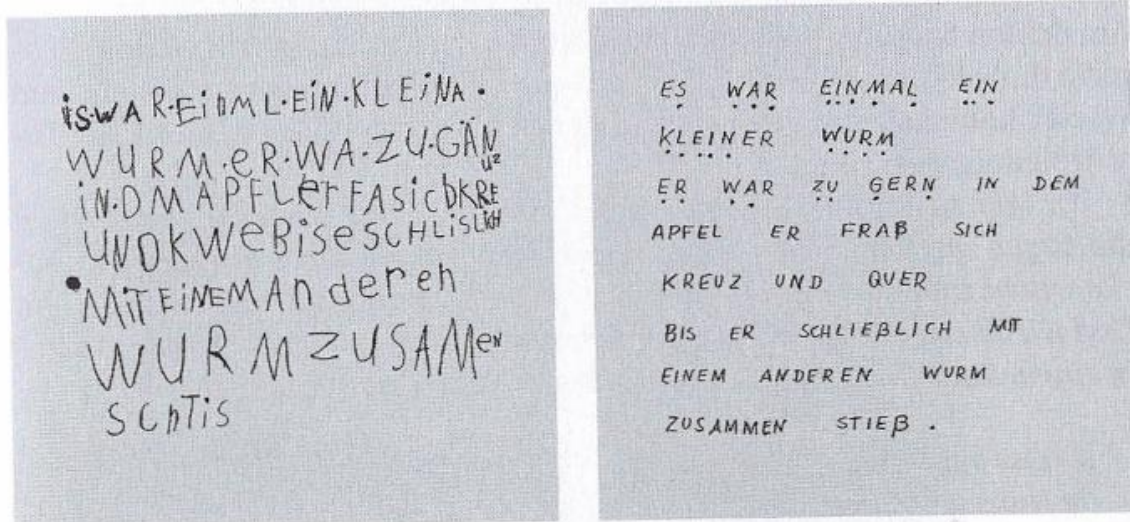 iS·WAR·EiNML·EiN·KLEiNA·
WURM·eR·WA·ZU·GÄN
iN·DMAPFLerFASicbKRE
uz
UNDKWeBiSeSCHLiSLICH
MiTEiNEMAnderen
WURMZUSAMen
SCHTiS
ES WAR EINMAL EIN
KLEINER WURM
ER WAR ZU GERN IN DEM
APFEL ER FRAß SICH
KREUZ UND QUER
BIS ER SCHLIEßLICH MIT
EINEM ANDEREN WURM
ZUSAMMEN STIEß .